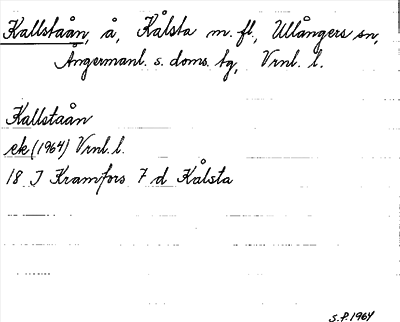 Kallstaån, å, Kålsta m. fl., Ullångers sn,
Ångermanl. s. doms. tg, Vrnl. l.
Kallstaån
ek (1964) Vrnl. l.
18 J Kramfors 7 d Kålsta
S.P. 1964